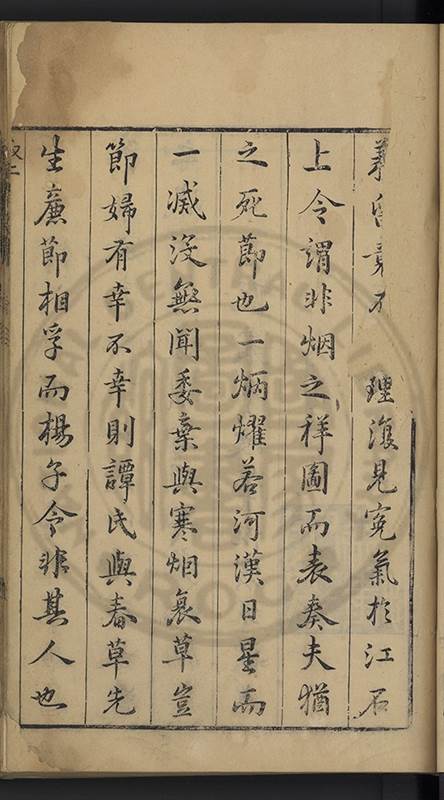 義 竟不 理復見冤氣於江石
上令謂非烟之祥圖而表奏夫猶
之死節也一炳燿若河漢日星而
一滅沒無聞委棄與寒烟衰草豈
節婦有幸不幸則譚氏與春草先
生廉節相孚而楊子令非其人也